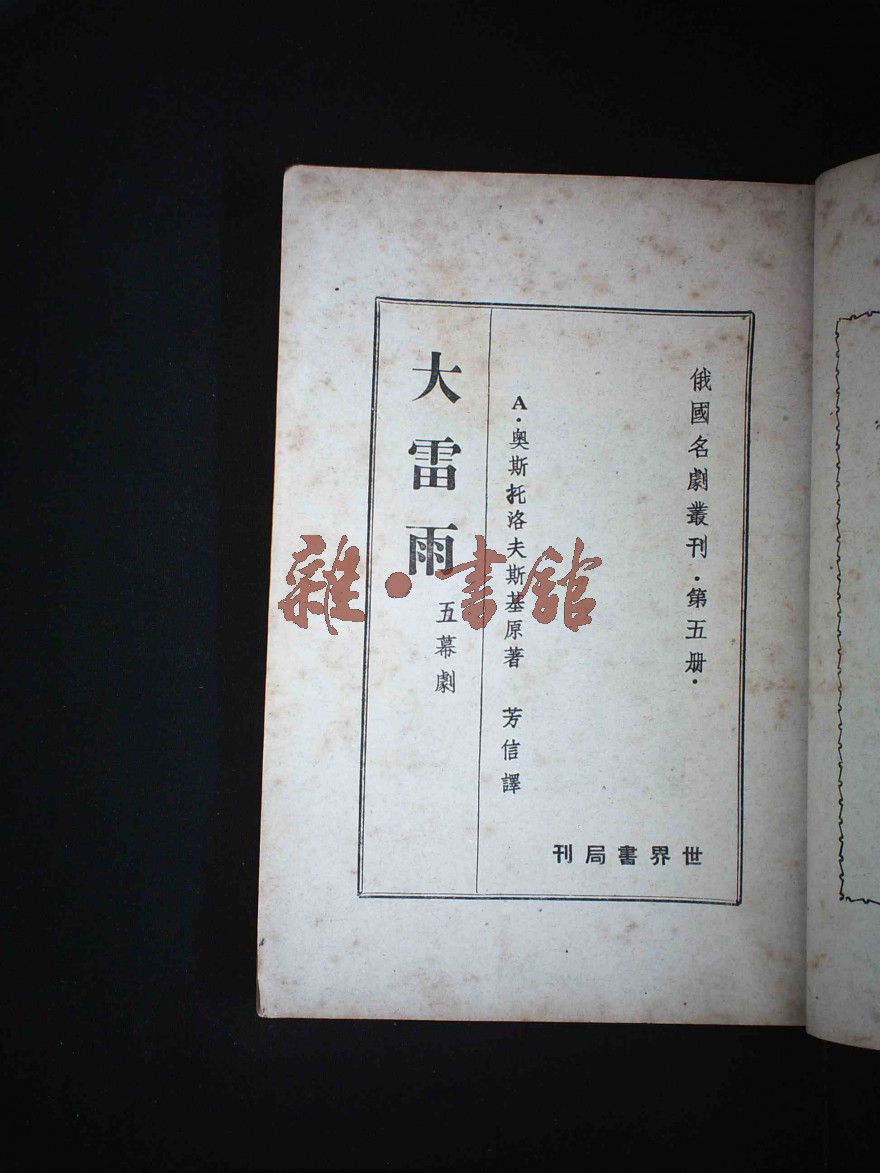 俄國名劇叢刊·第五册·
A·奥斯托洛夫斯基原著 芳信譯
大雷雨
五幕劇
世界書局刊
雜·書館